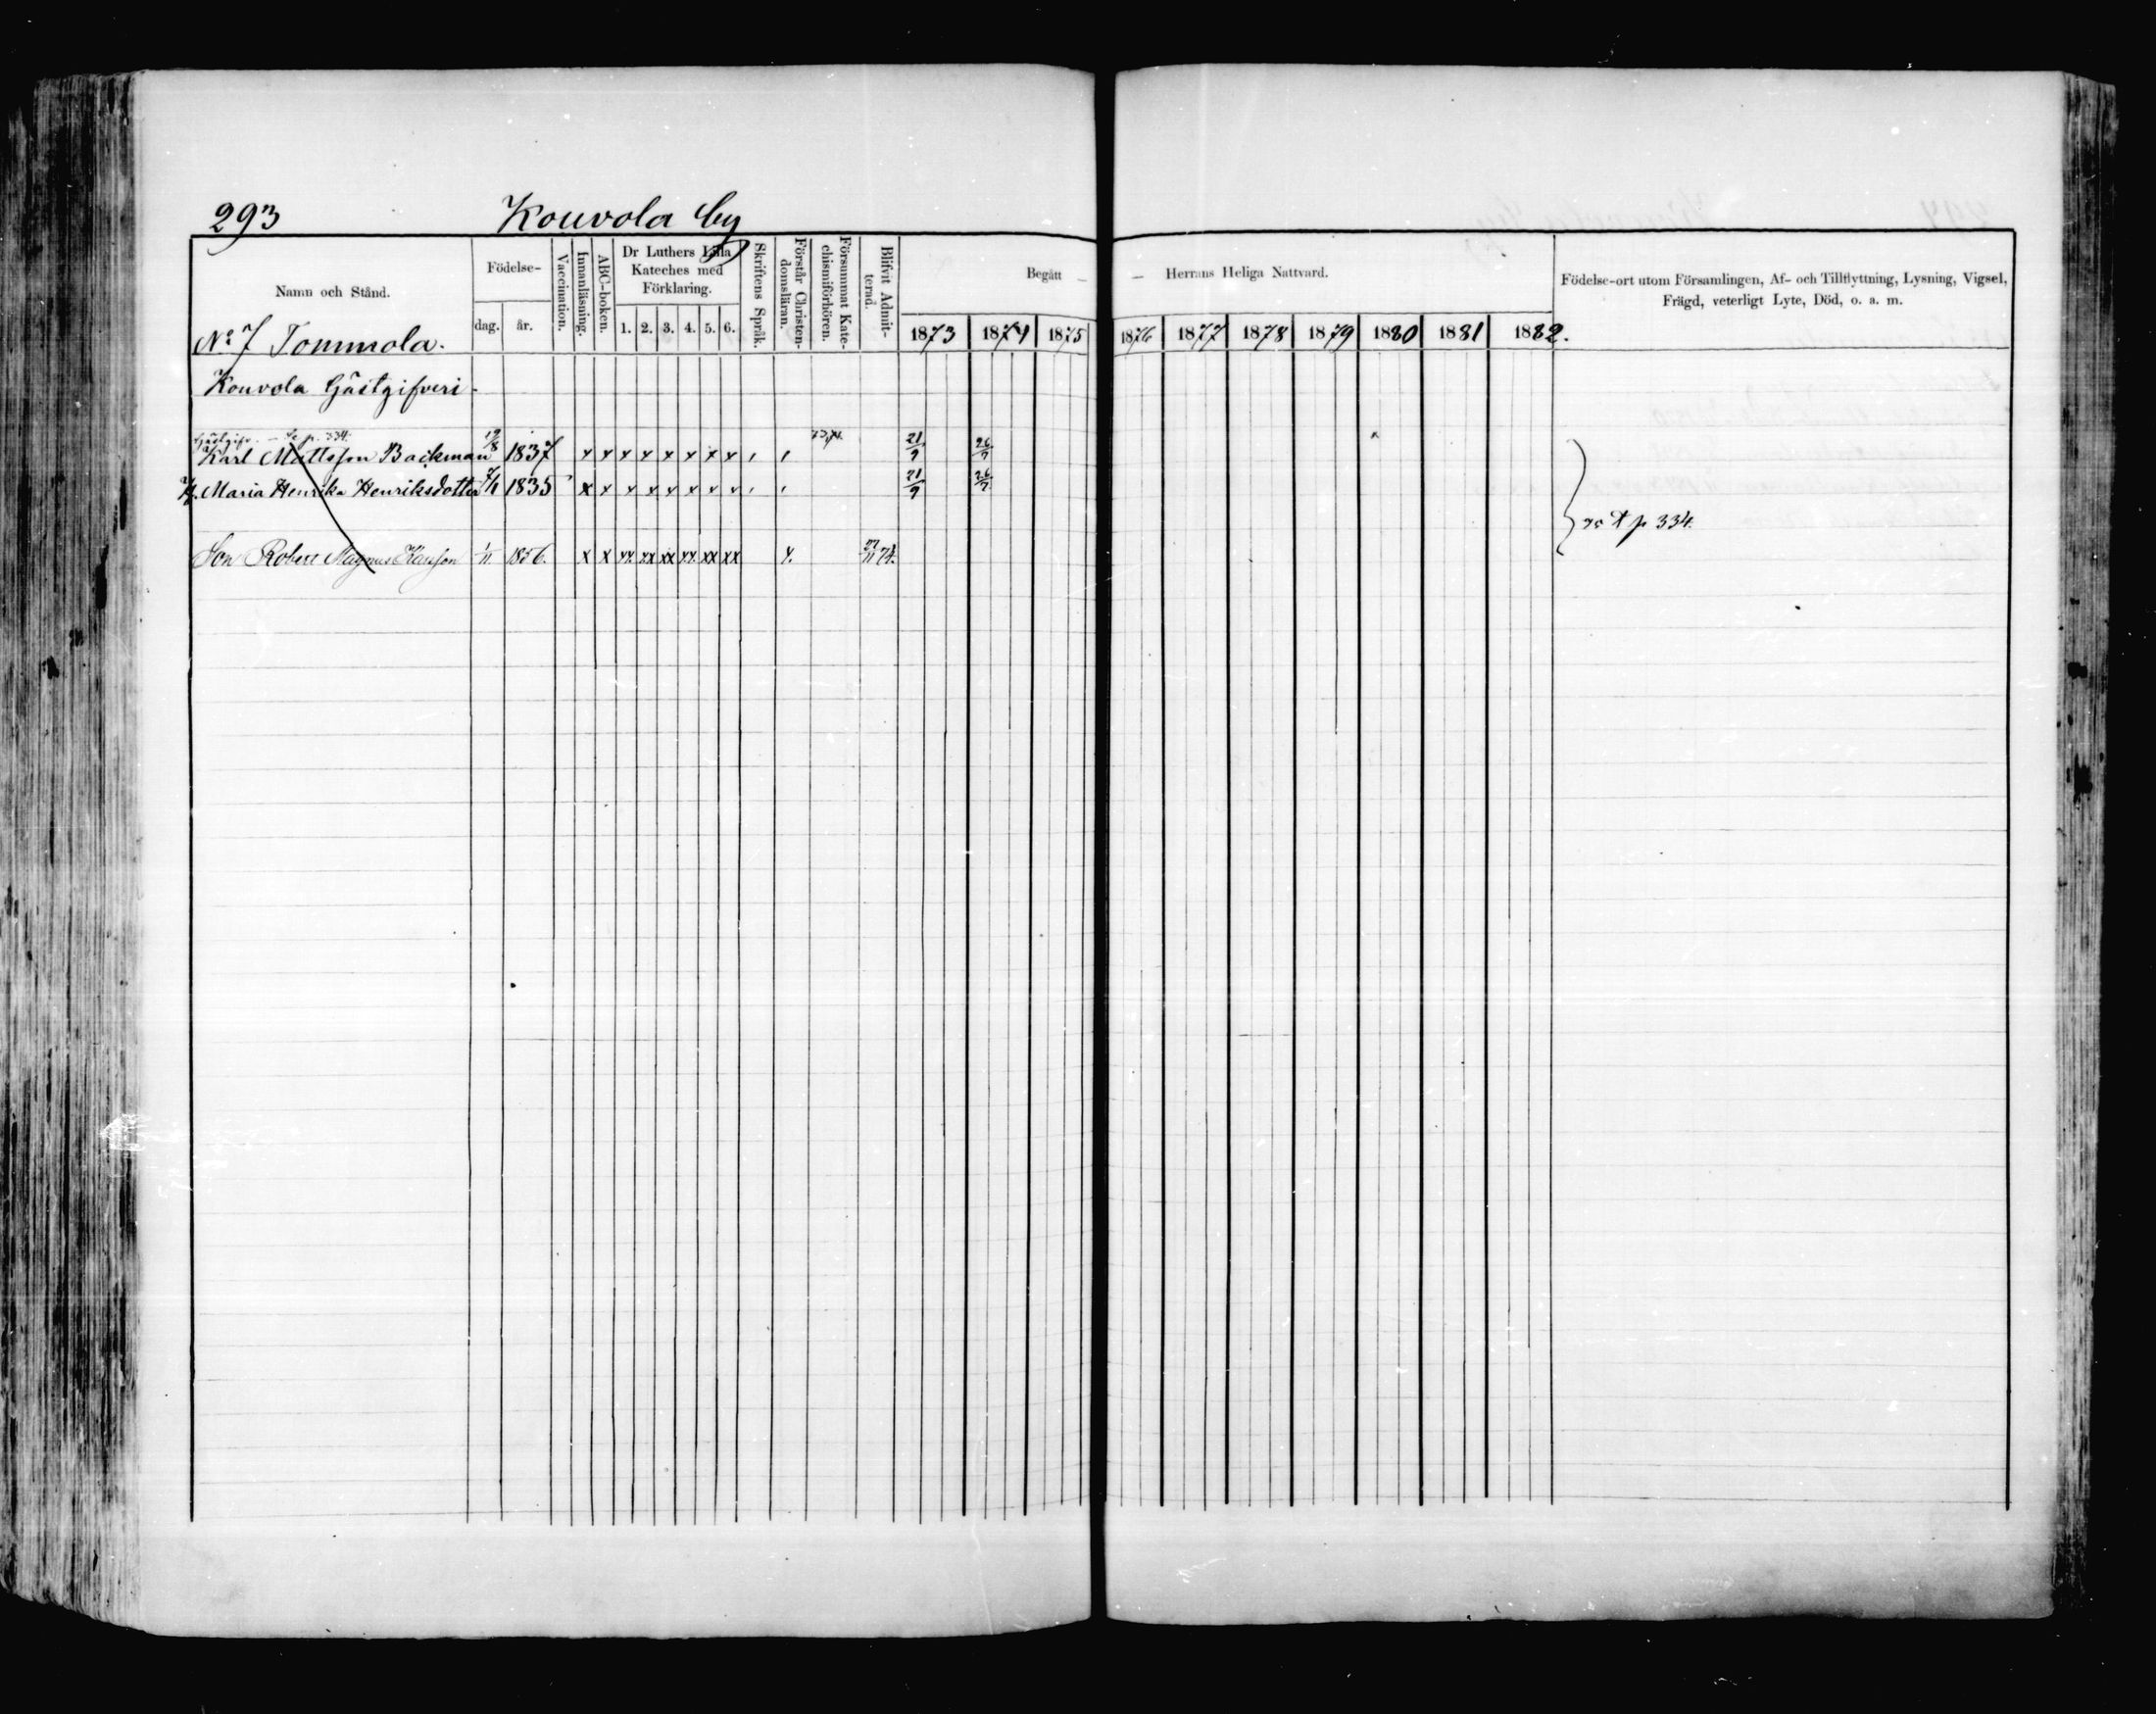 293 Kouvola by
Namn och Stånd.
Födelse-
dag. år.
Vaccination.
Innanläsning.
ABC-boken.
Dr Luthers Lilla
Kateches med
Förklaring.
1. 2. 3. 4. 5. 6.
Skriftens Språk.
Förstår Christen-
domsläran.
Försummat Kate-
chismiförhören.
Blifvit Admit-
terad.
Begått — — Herrans Heliga Nattvard.
1873 1874 1875 1876 1877 1878 1879 1880 1881 1882.
Födelse-ort utom Församlingen, Af- och Tillflyttning, Lysning, Vigsel,
Frägd, veterligt Lyte, Död, o. a. m.
No 7 Tommola.
Kouvola Gästgifveri.
Gästgifv. - Se p. 334.
Karl Mattsson Backman 19/8 1837 x x x x x x x x 73,74. 21/9 26/7
H. Maria Henrika Henriksdotter 1835 x x x x x x x x 21/9 26/7
75 p 334.
Son Robert Magnus Karlsson 1/11 1856. x x xx xx xx xx xx xx x. 74.